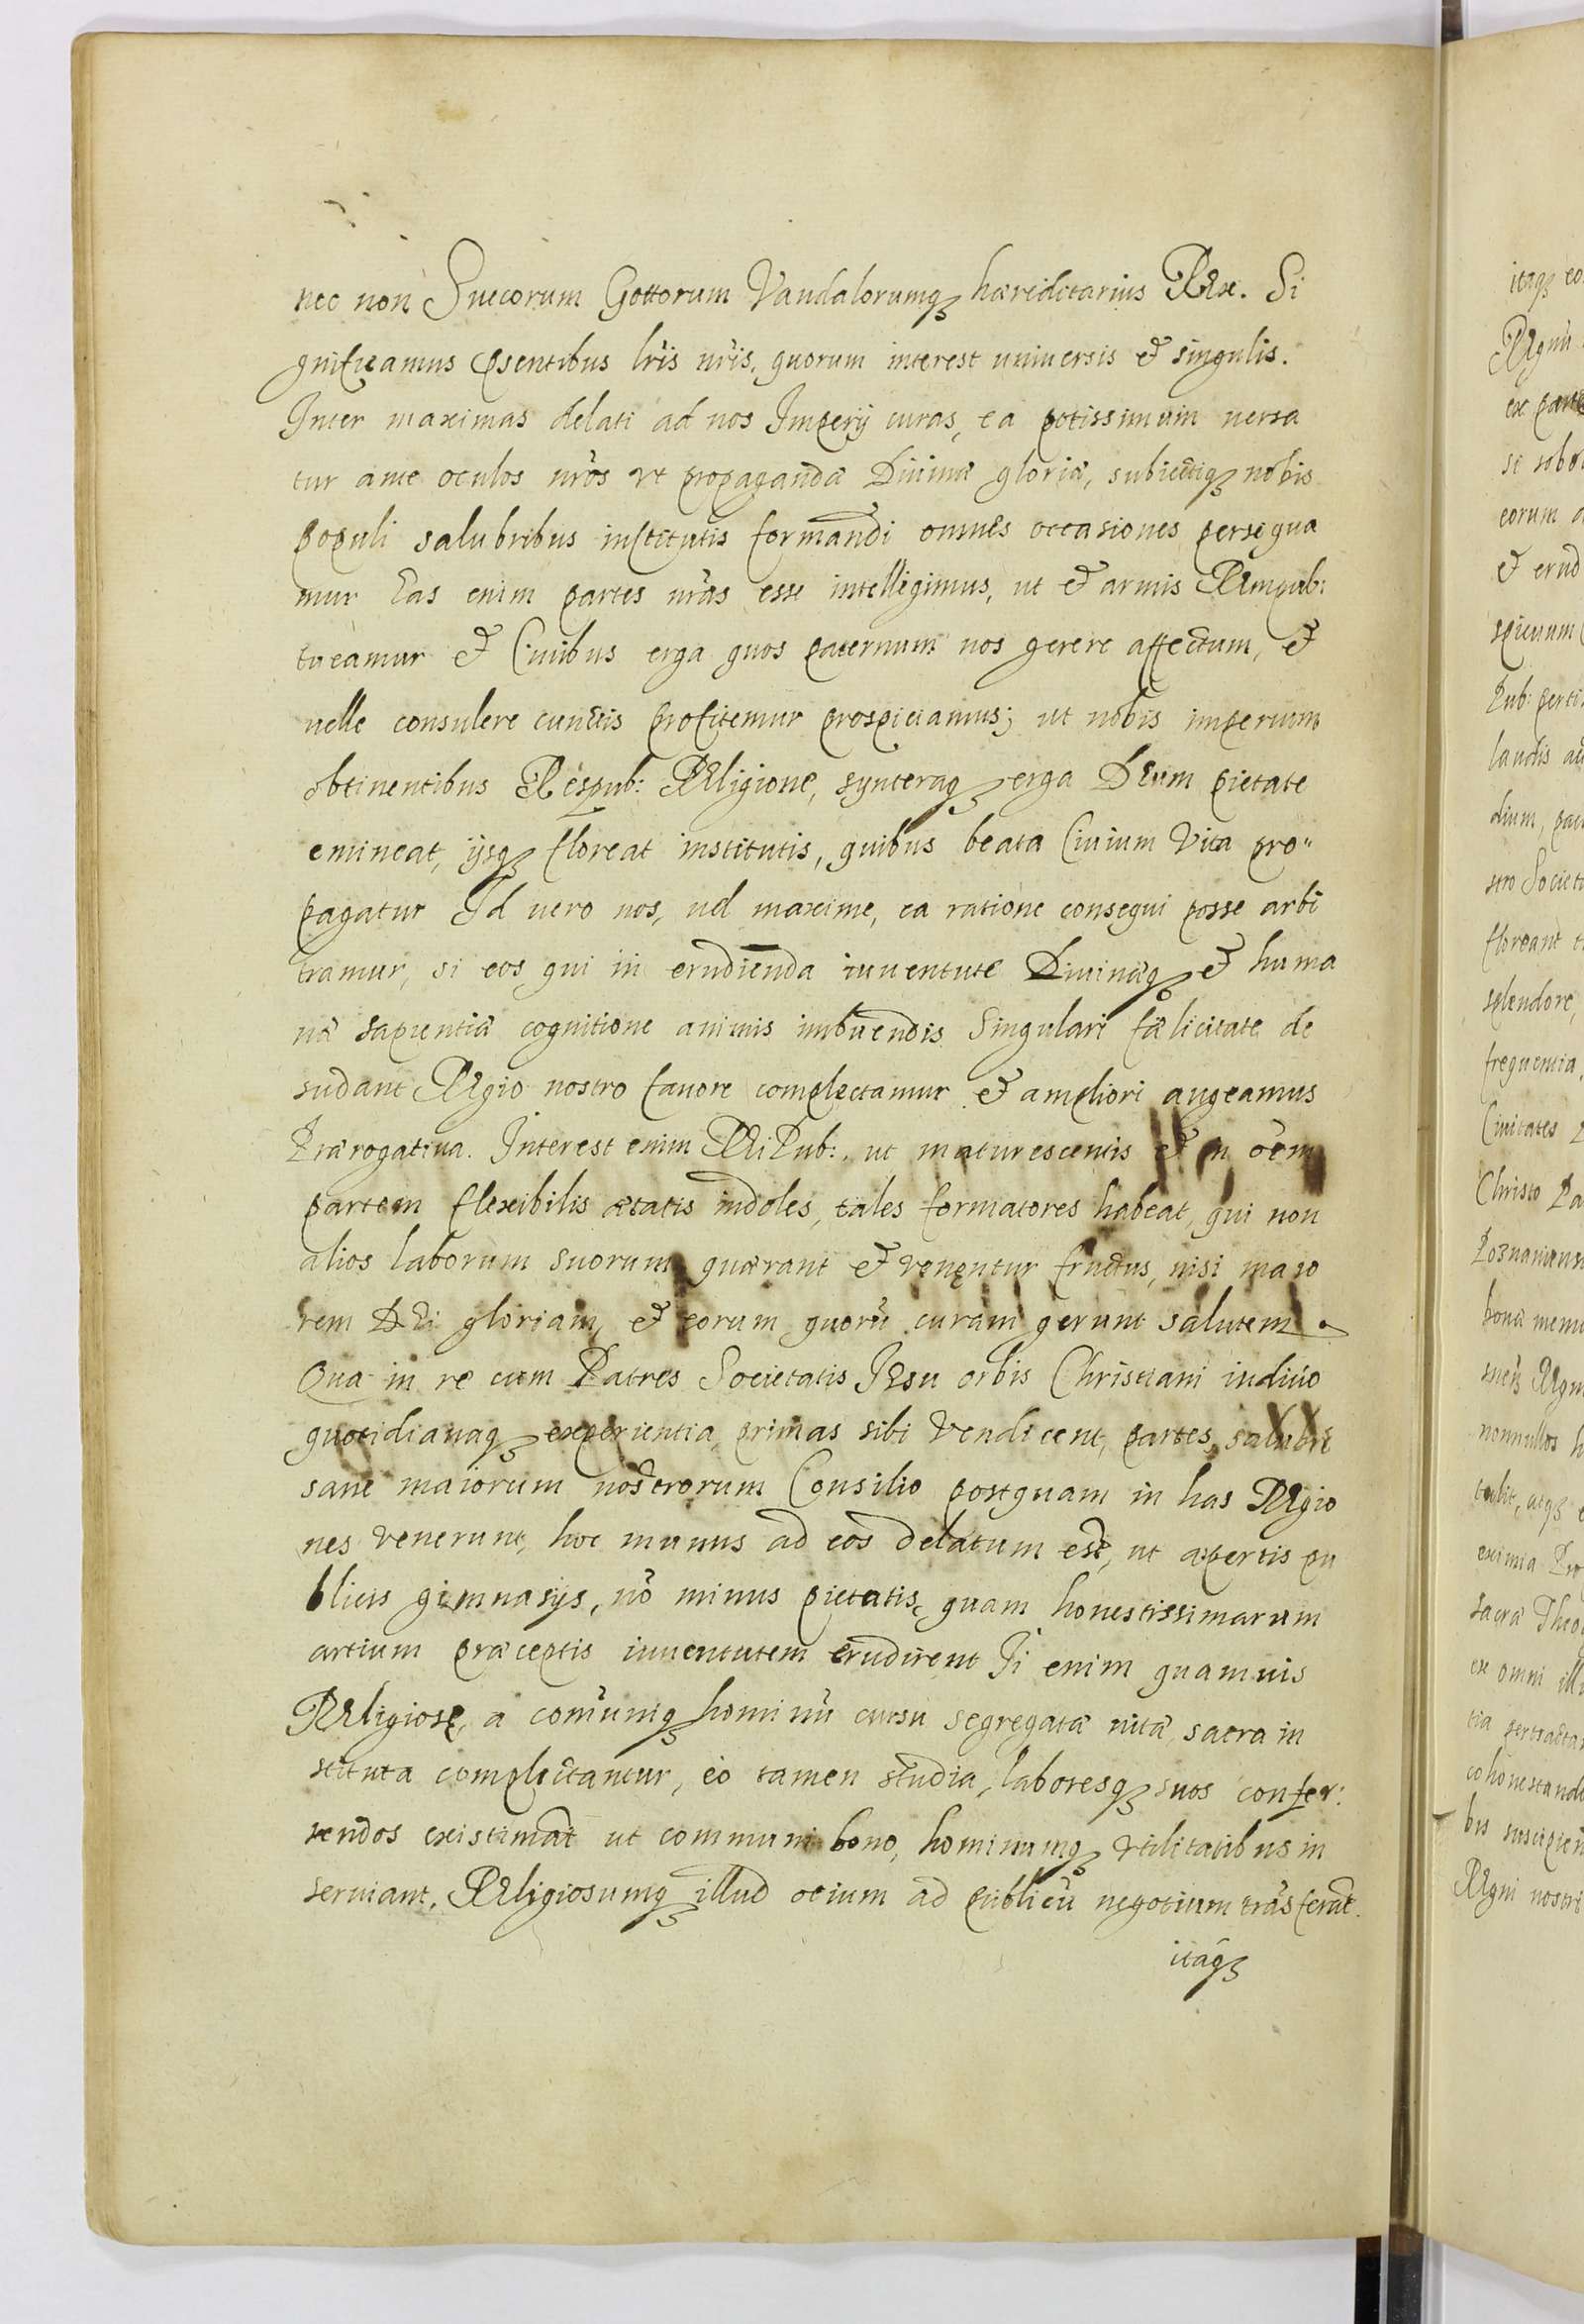 nec non Suecorum Gottorum Vandalorumq₃ hæreditarius REx. Si
gnificamus p̃sentibus lr̃is nr̃is, quorum interest uniuersis et singulis.
Inter maximas delati ad nos Imperij curas, ea potissimum uersa
tur ante oculos nr̃os vt propagandæ Diuinæ gloriæ, subiectiq₃ nobis
populi salubribus institutis formandi omnes occasiones persequa
mur Eas enim partes nr̃as esse intelligimus, ut et armis REmpub:
tueamur et Ciuibus erga quos paternum nos gerere affectum, et
uelle consulere cunctis profitemur prospiciamus; ut nobis imperium
obtinentibus Respub: REligione, synceraq₃ erga DEum pietate
emineat, ijsq₃ floreat institutis, quibus beata Ciuium Vita pro"
pagatur Id uero nos, uel maxime, ea ratione consequi posse arbi
tramur, si eos qui in erudienda iuuentute Diuinæq₃ et huma
næ sapientiæ cognitione animis imbuendis Singulari fælicitate de
sudant REgio nostro fauore complectamur et ampliori augeamus
Prærogatiua. Interest enim REi Pub:, ut maturescentis et in oẽm
partem flexibilis ætatis indoles, tales formatores habeat, qui non
alios laborum suorum quærant et venentur fructus, nisi maio
rem DEi gloriam, et eorum quorũ curam gerunt salutem.
Qua in re cum Patres Societatis IEsu orbis Christiani iudicio
quotidianaq₃ experientia, primas sibi vendicent, partes, salubri
sane maiorum nostrorum Consilio postquam in has REgio
nes venerunt, hoc munus ad eos delatum est, ut apertis pu
blicis gimnasijs, nõ minus pietatis, quam honestissimarum
artium præceptis iuuentutem erudirent Ii enim quamuis
REligiosę, a comũniq₃ hominũ cursu segregatæ uitæ, sacra in
stituta complectantur, eo tamen studia, laboresq₃ suos confe
rendos existimãt ut communi bono, hominumq₃ vtilitatibus in
seruiant, REligiosumq₃ illud otium ad publicũ negotium trãsferãt.
itaq₃
itaq₃ eo
REgni
ex parte
se
eorum
et erud
spicuum
Pub: perti
laudis
dium,
stro Societ
floreant
splendore,
frequentia,
Ciuitates
Christo Pa
Poznanien
bonæ mem
REgni
nonnullos
atq₃
eximia
sacræ Theo
ex omni ill
tia pertracta
cohonestand
bis suscipien
REgni nostri